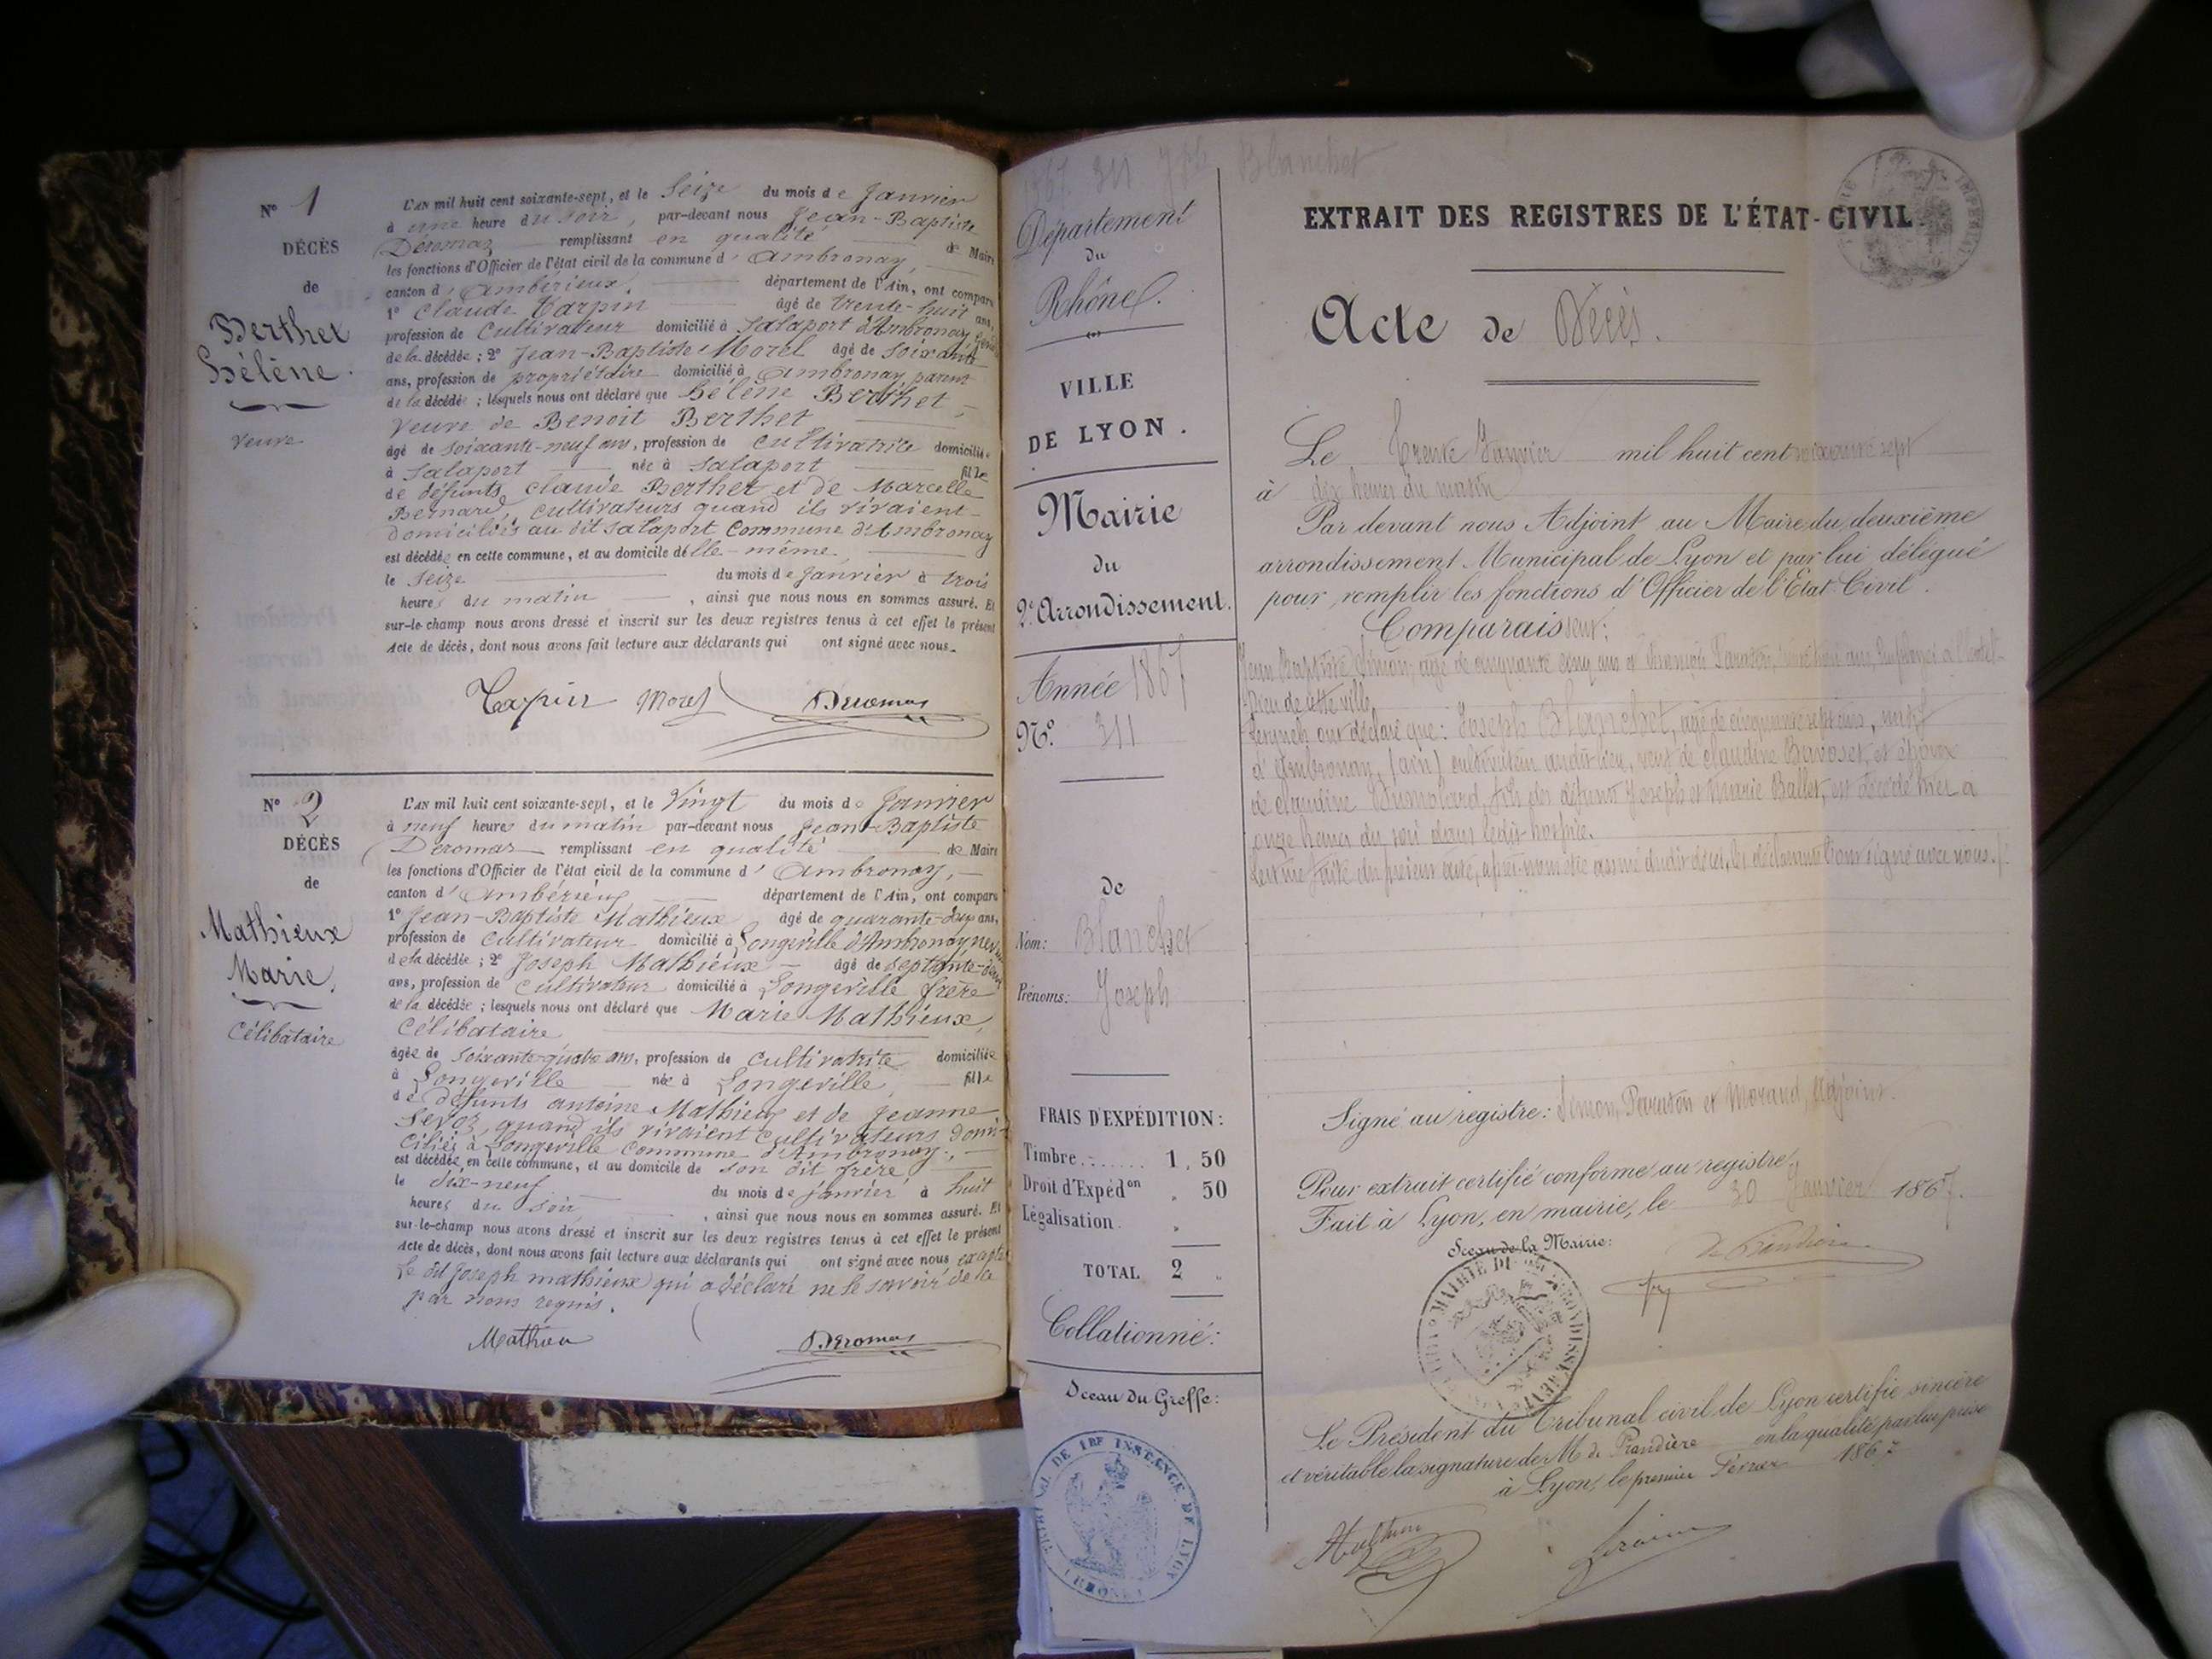 N° 1
DÉCÈS
de
Berthet
Hélène.
veuve
L'AN mil huit cent soixante-sept, et le Seize du mois de Janvier
à une heure du soir, par-devant nous Jean-Baptiste
Deromas remplissant en qualité de Maire
les fonctions d'Officier de l'état civil de la commune d'Ambronay,
canton d'Ambérieux, département de l'Ain, ont comparu
1° Claude Tarpin âgé de trente-huit ans,
profession de Cultivateur domicilié à Salaport d'Ambronay,
de la décédée ; 2° Jean-Baptiste Morel âgé de soixante
ans, profession de propriétaire domicilié à Ambronay parent
de la décédée ; lesquels nous ont déclaré que Hélène Berthet,
veuve de Benoit Berthet
âgé de soixante-neuf ans, profession de cultivatrice domiciliée
à Salaport née à Salaport fille
de défunts claude Berthet et de Marcelle
Bernard, cultivateurs quand ils vivaient
domiciliés au dit salaport Commune d'Ambronay
est décédée en cette commune, et au domicile d'elle-même.
le Seize du mois de Janvier à trois
heures du matin, ainsi que nous nous en sommes assuré. Et
sur-le-champ nous avons dressé et inscrit sur les deux registres tenus à cet effet le présent
Acte de décès, dont nous avons fait lecture aux déclarants qui ont signé avec nous.
Tarpin Morel Deromas
N° 2
DÉCÈS
de
Mathieux
Marie,
Célibataire
L'AN mil huit cent soixante-sept, et le Vingt du mois de Janvier
à neuf heures du matin par-devant nous Jean-Baptiste
Deromas remplissant en qualité de Maire
les fonctions d'Officier de l'état civil de la commune d'Ambronay,
canton d'Ambérieux département de l'Ain, ont comparu
1° Jean-Baptiste Mathieux âgé de quarante-deux ans,
profession de Cultivateur domicilié à Longeville d'Ambronay neveu
de la décédée ; 2° Joseph Mathieux âgé de septante-deux
ans, profession de Cultivateur domicilié à Longeville frère
de la décédée ; lesquels nous ont déclaré que Marie Mathieux,
Célibataire
âgée de soixante-quatre ans, profession de cultivatrice domiciliée
à Longeville née à Longeville, fille
de défunts antoine Mathieux et de Jeanne
Sevoz, quand ils vivaient cultivateurs domi-
ciliés à Longeville Commune d'Ambronay,
est décédée en cette commune, et au domicile de son dit frère
le dix-neuf du mois de janvier à huit
heures du soir, ainsi que nous nous en sommes assuré. Et
sur-le-champ nous avons dressé et inscrit sur les deux registres tenus à cet effet le présent
Acte de décès, dont nous avons fait lecture aux déclarants qui ont signé avec nous excepté
le dit Joseph mathieux qui a déclaré ne le savoir de ce
par nous requis.
Mathieu Deromas
1867 311 Jph Blanchet
Département
du
Rhône.
VILLE
DE LYON.
Mairie
du
2e Arrondissement.
Année 1867
N° 311
de
Nom: Blanchet
Prénoms: Joseph
FRAIS D'EXPÉDITION:
Timbre....... 1, 50
Droit d'Expédon " 50
Légalisation. "
TOTAL 2 "
Collationné:
Sceau du Greffe:
TRIBUNAL DE 1RE INSTANCE DE LYON
(RHONE)
EXTRAIT DES REGISTRES DE L'ÉTAT-CIVIL
Acte de Décès.
Le trente Janvier mil huit cent soixante sept
à dix heures du matin
Par devant nous Adjoint au Maire du deuxième
arrondissement Municipal de Lyon et par lui délégué
pour remplir les fonctions d'Officier de l'État Civil.
Comparaissent:
Jean Baptiste Simon, âgé de cinquante cinq ans et ans, employés à l'hôtel-
Dieu de cette ville
Lesquels ont déclaré que: Joseph Blanchet, âgé de cinquante sept ans, natif
d'Ambronay, (ain) cultivateur audit-lieu, veuf de claudine Bavoset, et époux
de claudine Dumolard, fils des défunts Joseph et Marie Ballet, est décédé hier à
onze heures du soir dans ledit hospice.
Lecture faite du présent acte, après nous être assuré dudit décès, les déclarants ont signé avec nous.
Signé au registre: Simon, Paraton et Morand, Adjoint.
Pour extrait certifié conforme au registre.
Fait à Lyon, en mairie, le 30 Janvier 1867.
Sceau de la Mairie:
MAIRIE DU ARRONDISSEMENT
Le Président du Tribunal civil de Lyon certifie sincère
et véritable la signature de M de Prandière en la qualité par lui prise
à Lyon, le premier Février 1867